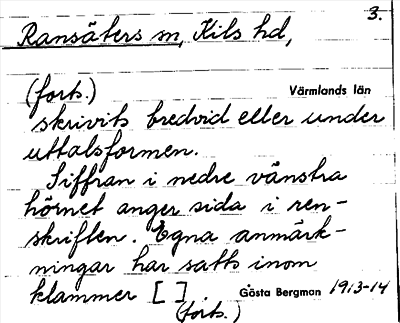 3.
Ransäters sn, Kils hd,
(forts.) Värmlands län
skrivits bredvid eller under
uttalsformen.
Siffran i nedre vänstra
hörnet anger sida i ren-
skriften. Egna anmärk-
ningar har satts inom
klammer [ ]. Gösta Bergman 1913-14
(forts.)